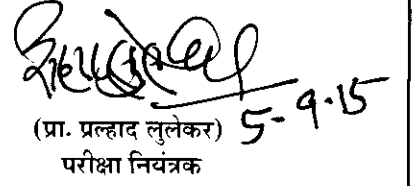 5-9-15
(प्रा. प्रल्हाद लुलेकर)
परीक्षा नियंत्रक